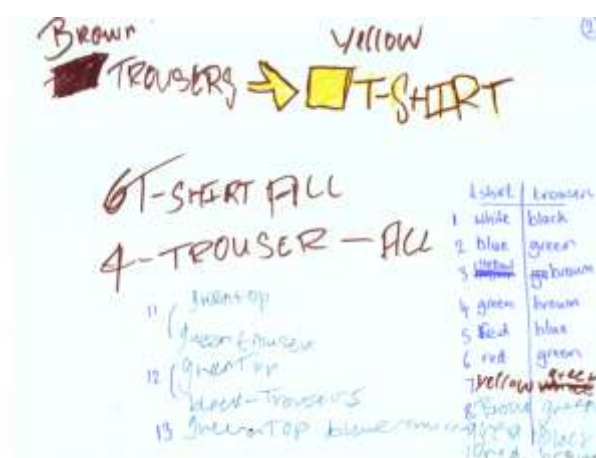 Brown
TROUSERS
Yellow
T-SHIRT
6 T-SHIRT ALL
4-TROUSER - ALL
11 green top
green trouser
12 green Top
black-Trousers
13 green Top blue
t shirt trousers
1 white black
2 blue green
3 yellow brown
4 green brown
5 Red blue
6 red green
7 Yellow green
8 green
black
10 red brown